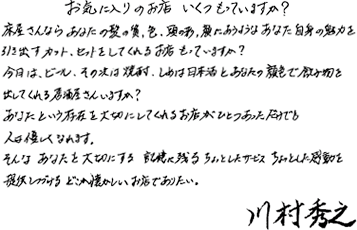 お気に入りのお店 いくつもっていますか?
床屋さんなら あなたの髪の質、色、頭の形、顔にあうような あなた自身の魅力を
引き出すカット、セットをしてくれるお店 もっていますか?
今日は、ビール、その次は焼酎、しめは日本酒とあなたの顔色で飲み物を
出してくれる居酒屋さんいますか?
あなたという存在を大切にしてくれるお店がひとつあっただけでも
人は優しくなれます。
そんな あなたを大切にする 記憶に残る ちょっとしたサービス ちょっとした感動を
提供しつづける どこか懐かしいお店でありたい。
川村秀之